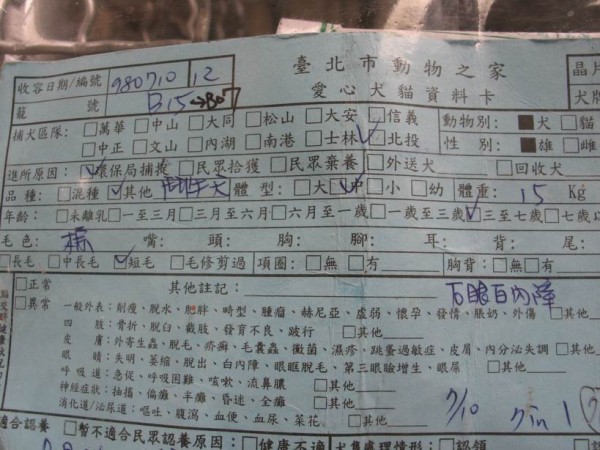 臺北市動物之家
收容日期/編號 980710 12 愛心犬貓資料卡 晶片
籠號 B15→B07 犬牌
捕犬區隊:□萬華□中山□大同□松山□大安□信義 動物別:■犬□貓
□中正□文山□內湖□南港□士林☑北投 性別:■雄□雌
進所原因:☑環保局捕捉□民眾拾獲□民眾棄養□外送犬 □回收犬
品種:□混種☑其他 體型:□大☑中□小□幼 體重:15 Kg
年齡:□未離乳□一至三月□三月至六月□六月至一歲□一歲至三歲☑三至七歲□七歲以
毛色:橘 嘴: 頭: 胸: 腳: 耳: 背: 尾:
□長毛□中長毛☑短毛□毛修剪過 項圈:□無□有 胸背:□無□有
□正常 其他註記: 右眼白內障
□異常
一般外表:削瘦、脫水、肥胖、畸型、腫瘤、赫尼亞、虛弱、懷孕、發情、脹奶、外傷 □其他
四肢:骨折、脫臼、截肢、發育不良、跛行 □其他
皮膚:外寄生蟲、脫毛、疥癬、毛囊蟲、黴菌、濕疹、跳蚤過敏症、皮屑、內分泌失調 □其他
眼睛:失明、萎縮、脫出、白內障、眼眶脫毛、第三眼瞼增生、眼屎 □其他
呼吸道:急促、呼吸困難、咳嗽、流鼻膿 □其他
神經症狀:抽搐、偏癱、半癱、昏迷、全癱 □其他
消化道/泌尿道:嘔吐、腹瀉、血便、血尿、菜花 □其他
7/10
適合認養 □暫不適合民眾認養原因:□健康不適 犬隻處理情形:□認領